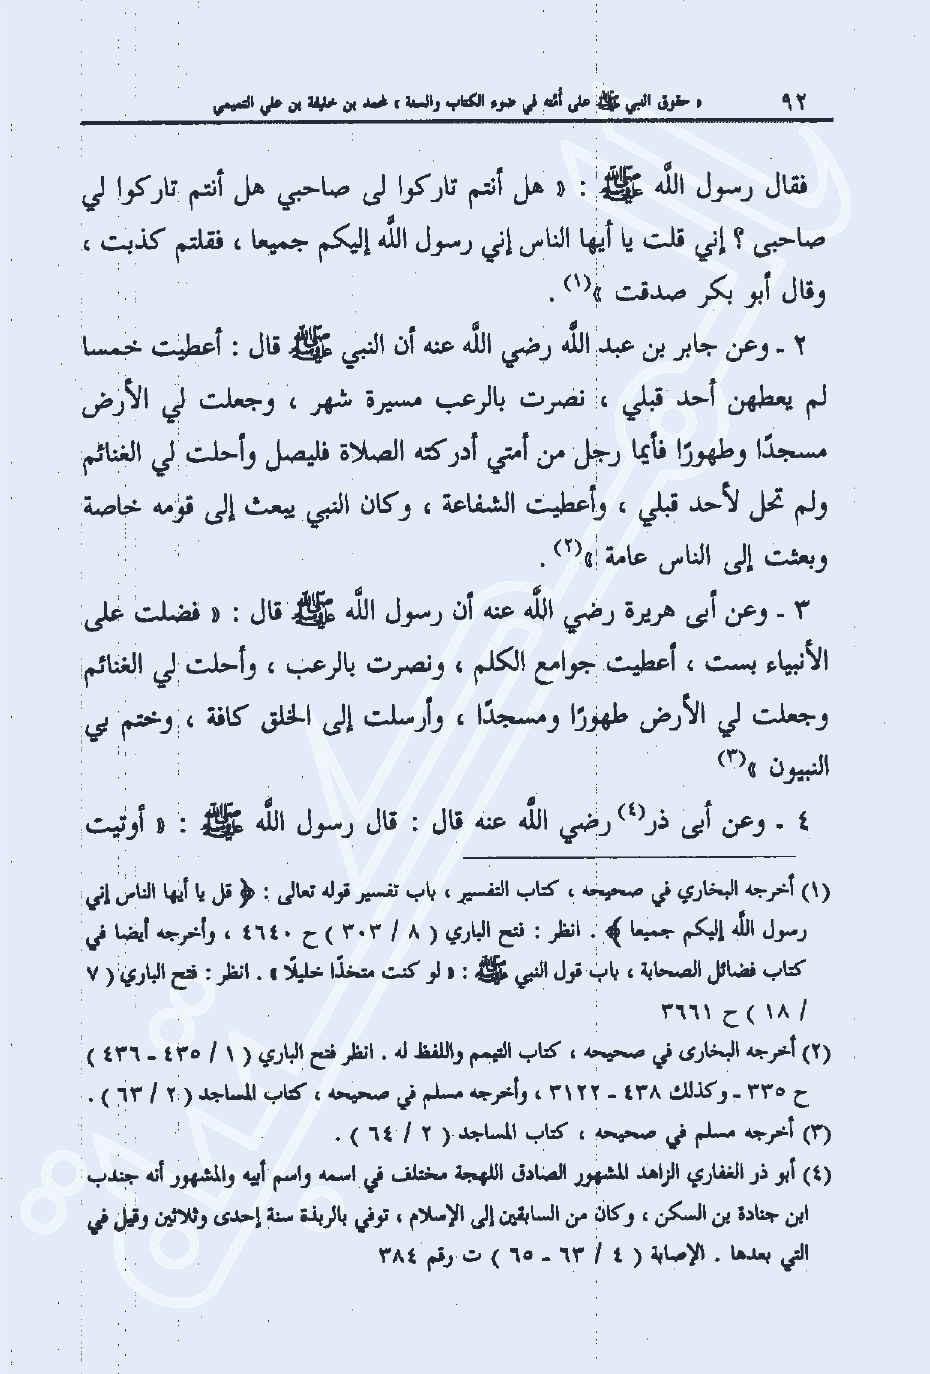 ٩٢ « حقوق النبي ﷺ على أمته في ضوء الكتاب والسنة » لمحمد بن خليفة بن علي التميمي
فقال رسول اللَّه ﷺ : « هل أنتم تاركوا لى صاحبي هل أنتم تاركوا لي
صاحبى ؟ إني قلت يا أيها الناس إني رسول اللَّه إليكم جميعا ، فقلتم كذبت ،
وقال أبو بكر صدقت »(١) .
٢ ـ وعن جابر بن عبد اللَّه رضي اللَّه عنه أن النبي ﷺ قال : أعطيت خمسا
لم يعطهن أحد قبلي ، نصرت بالرعب مسيرة شهر ، وجعلت لي الأرض
مسجدًا وطهورًا فأيما رجل من أمتي أدركته الصلاة فليصل وأحلت لي الغنائم
ولم تحل لأحد قبلي ، وأعطيت الشفاعة ، وكان النبي يبعث إلى قومه خاصة
وبعثت إلى الناس عامة »(٢) .
٣ ـ وعن أبى هريرة رضي اللَّه عنه أن رسول اللَّه ﷺ قال : « فضلت على
الأنبياء بست ، أعطيت جوامع الكلم ، ونصرت بالرعب ، وأحلت لي الغنائم
وجعلت لي الأرض طهورًا ومسجدًا ، وأرسلت إلى الخلق كافة ، وختم بي
النبيون »(٣)
٤ ـ وعن أبى ذر(٤) رضي اللَّه عنه قال : قال رسول اللَّه ﷺ : « أوتيت
(١) أخرجه البخاري في صحيحه ، كتاب التفسير ، باب تفسير قوله تعالى : ﴿ قل يا أيها الناس إني
رسول اللَّه إليكم جميعا ﴾ . انظر : فتح الباري ( ٨ / ٣٠٣ ) ح ٤٦٤٠ ، وأخرجه أيضا في
كتاب فضائل الصحابة ، باب قول النبي ﷺ : « لو كنت متخذًا خليلًا » . انظر : فتح الباري ( ٧
/ ١٨ ) ح ٣٦٦١
(٢) أخرجه البخارى في صحيحه ، كتاب التيمم واللفظ له . انظر فتح الباري ( ١ / ٤٣٥ ـ ٤٣٦ )
ح ٣٣٥ ـ وكذلك ٤٣٨ ـ ٣١٢٢ ، وأخرجه مسلم في صحيحه ، كتاب المساجد ( ٢ / ٦٣ ) .
(٣) أخرجه مسلم في صحيحه ، كتاب المساجد ( ٢ / ٦٤ ) .
(٤) أبو ذر الغفاري الزاهد المشهور الصادق اللهجة مختلف في اسمه واسم أبيه والمشهور أنه جندب
ابن جنادة بن السكن ، وكان من السابقين إلى الإسلام ، توفي بالربذة سنة إحدى وثلاثين وقيل في
التي بعدها . الإصابة ( ٤ / ٦٣ ـ ٦٥ ) ت رقم ٣٨٤